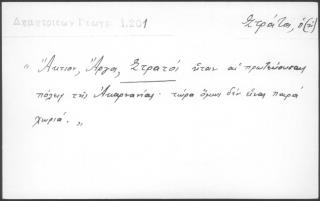 Δημητριέων Γεωγρ. 1.201
Στράτα, ὁ (τὰ)
" Ἄκτιον, Ἄργος, Στρατοί ἦταν αἱ πρωτεύουσαι
πόλεις τῆς Ἀκαρνανίας· τώρα ὅμως δὲν εἶναι παρά
χωριά. "